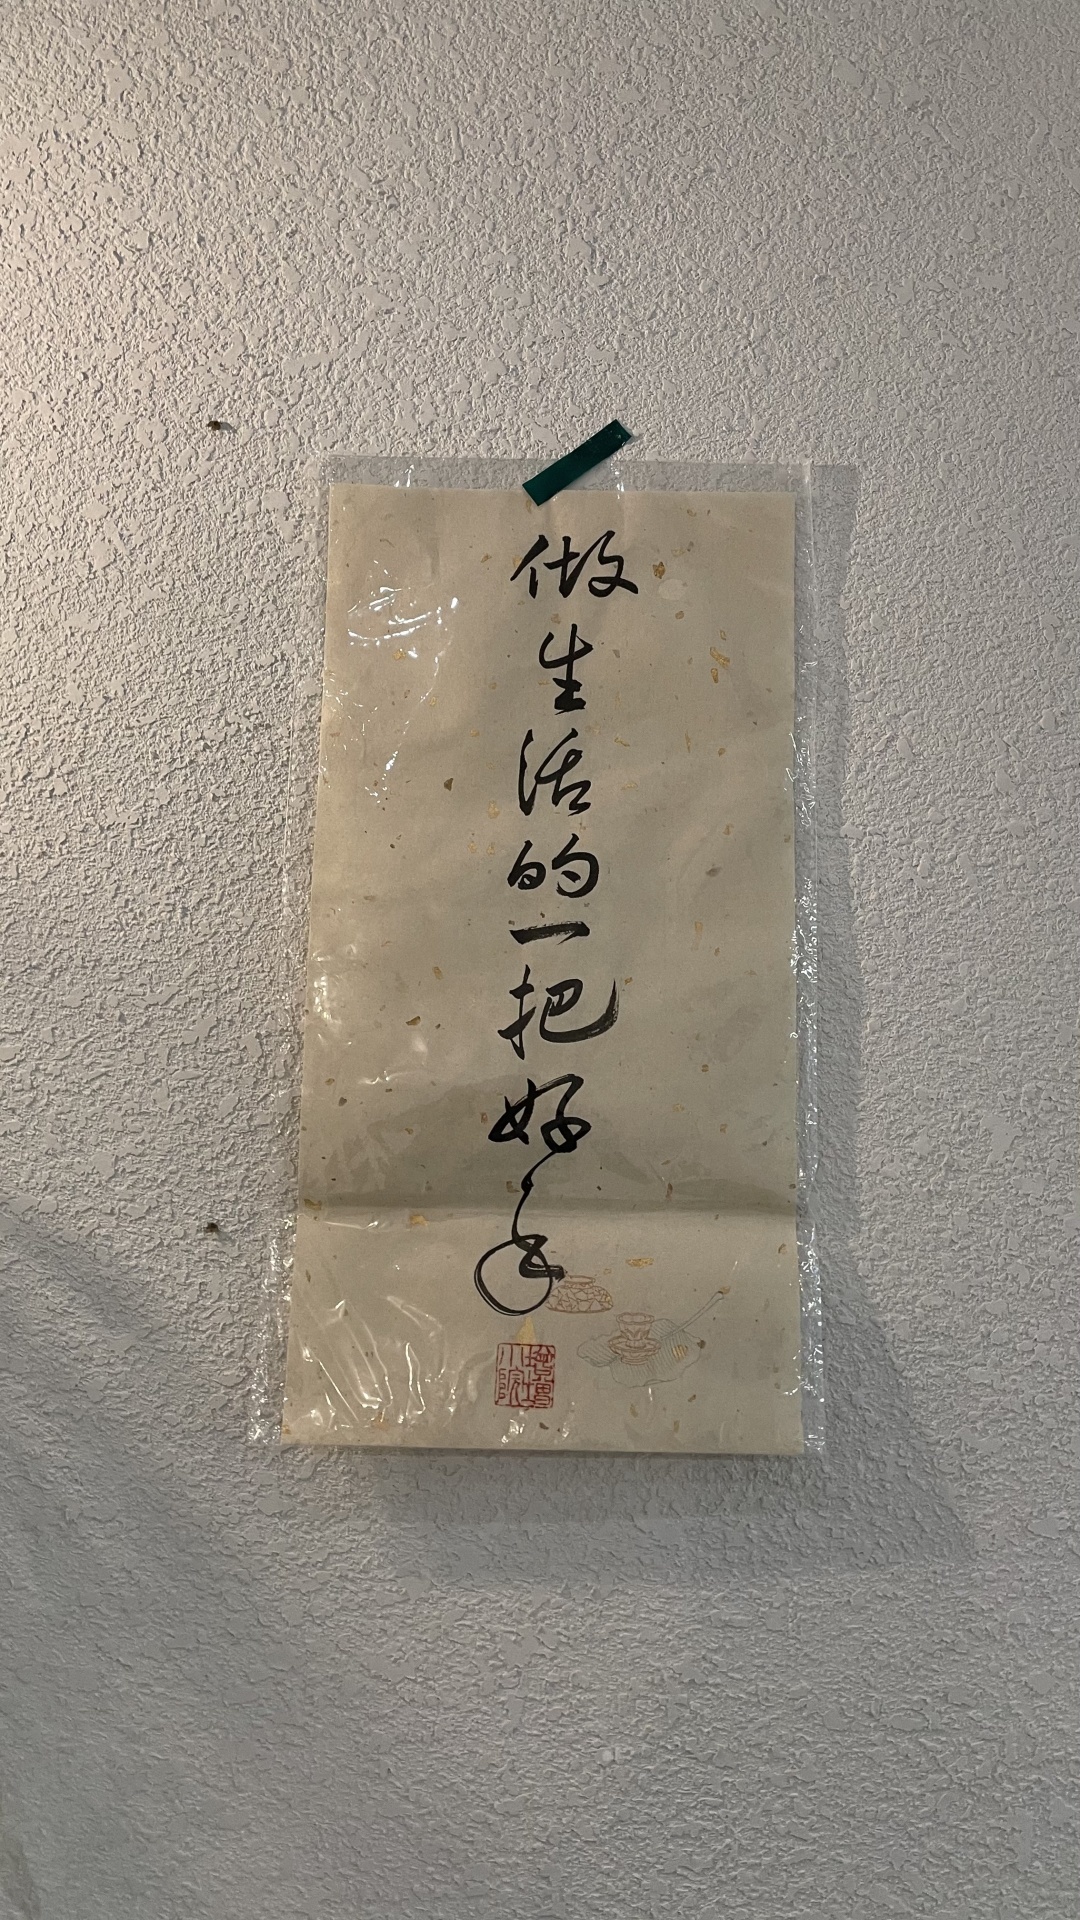 做生活的一把好手